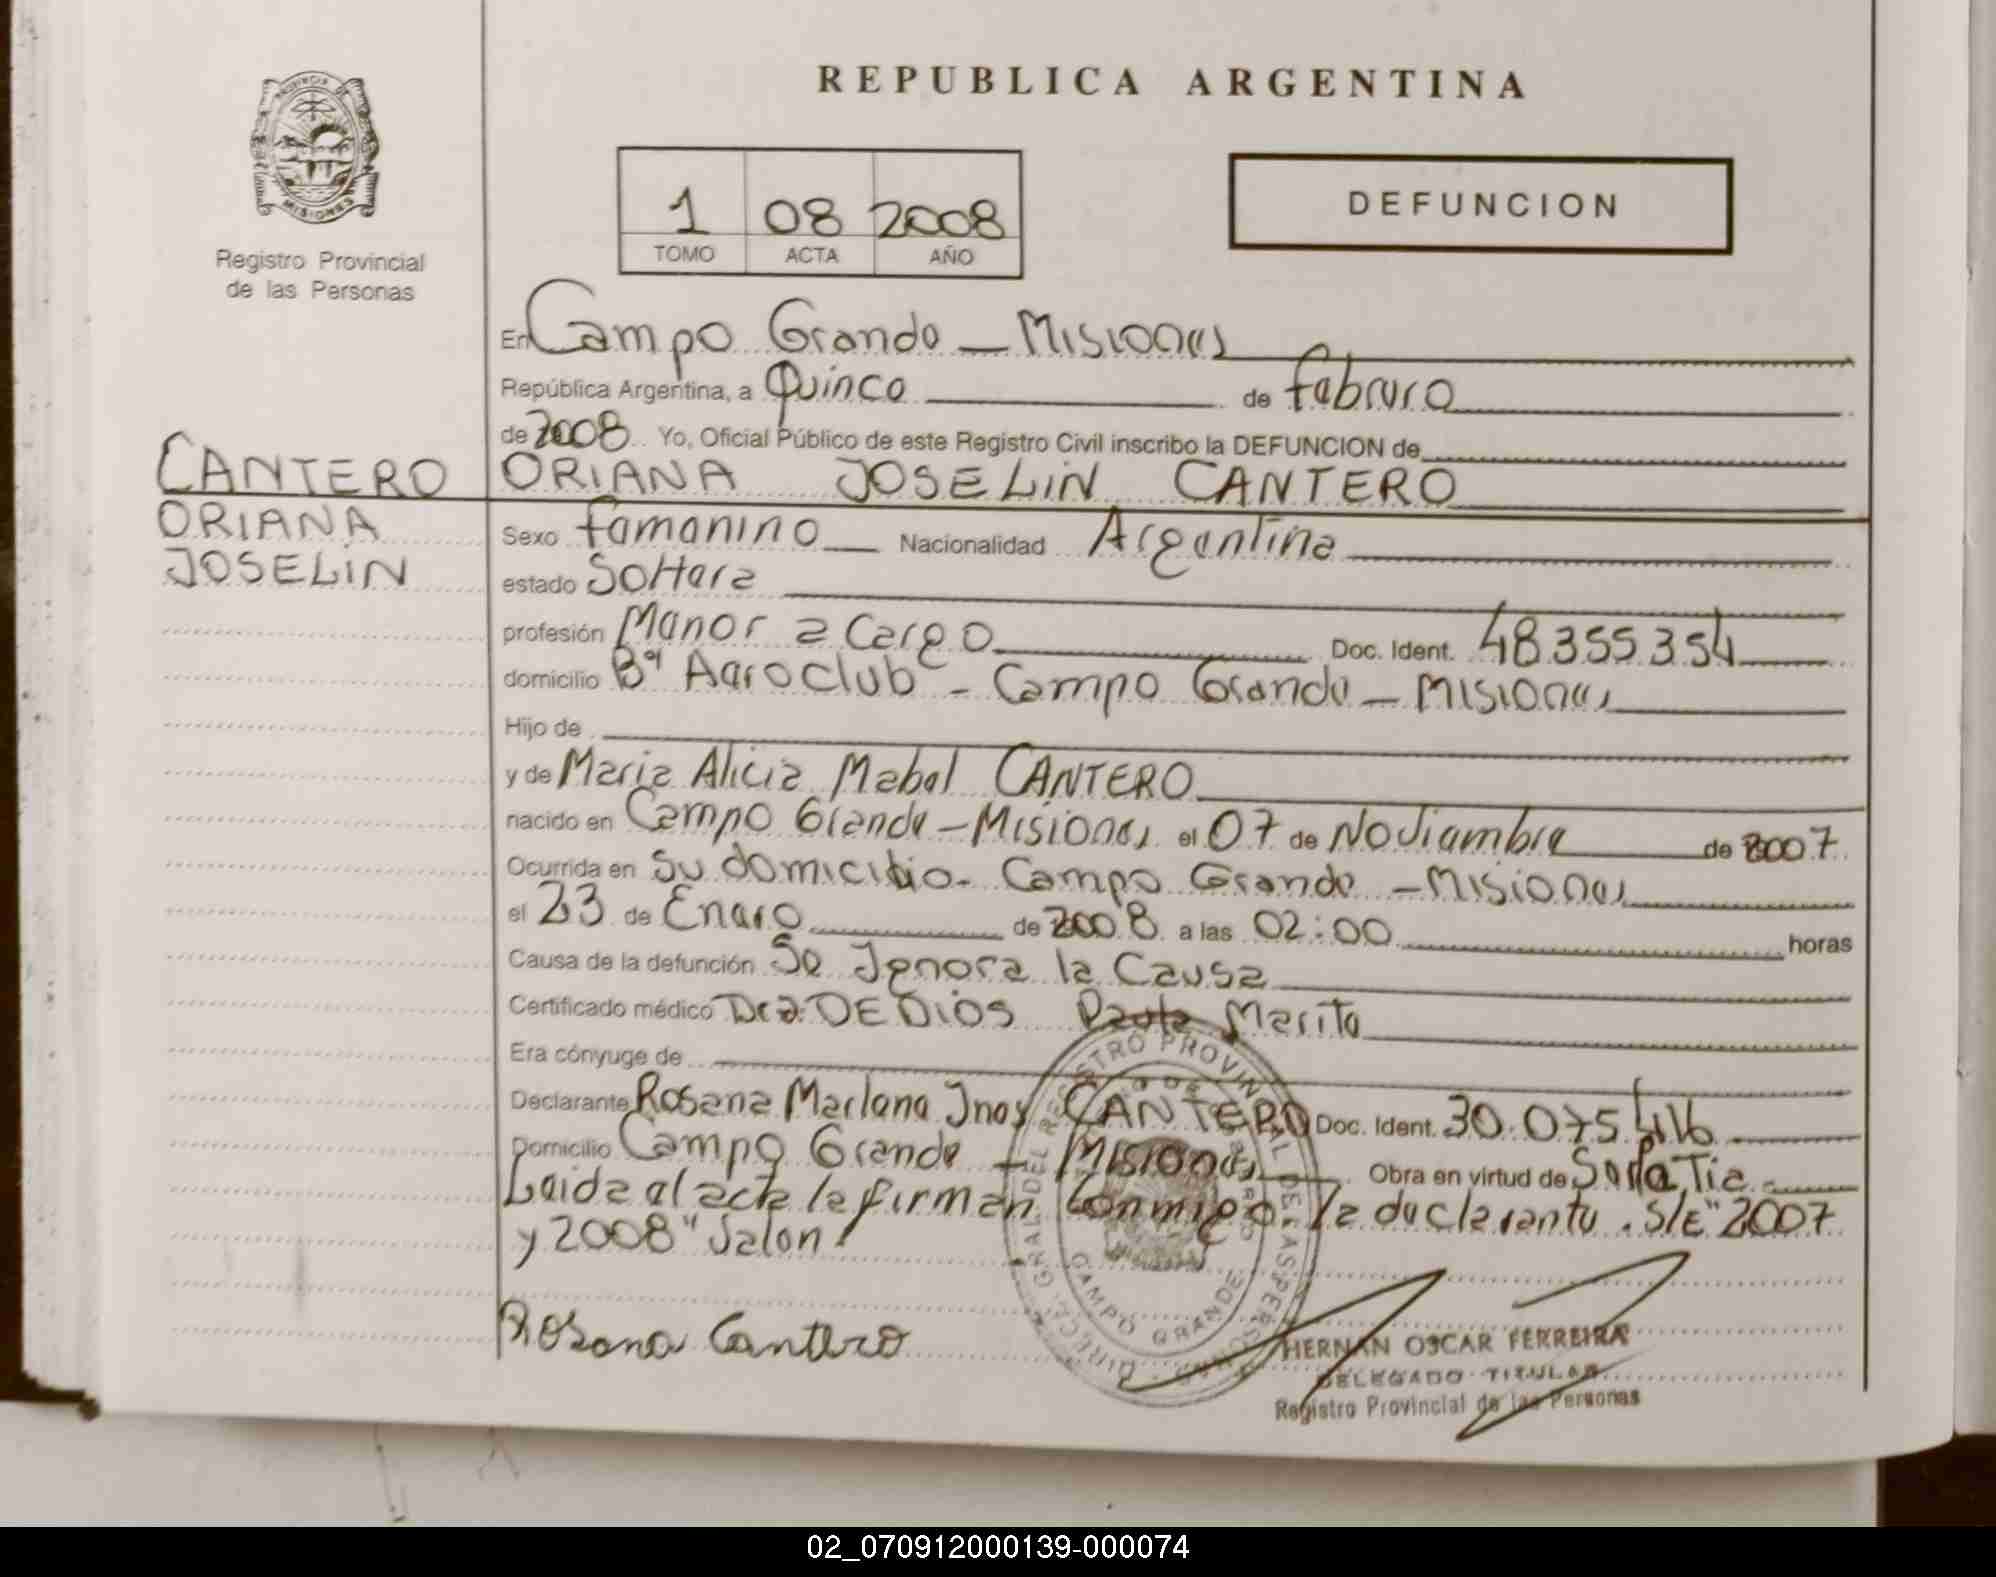 REPUBLICA ARGENTINA
PROVINCIA DE
MISIONES
Registro Provincial
de las Personas
1 08 2008
TOMO ACTA AÑO
DEFUNCION
En Campo Grande — Misiones
República Argentina, a Quince de febrero
de 2008 Yo, Oficial Público de este Registro Civil inscribo la DEFUNCION de
CANTERO
ORIANA
JOSELIN
ORIANA JOSELIN CANTERO
Sexo femenino Nacionalidad Argentina
estado Soltera
profesión Menor a Cargo Doc. Ident. 48355354
domicilio Bº Aeroclub - Campo Grande — Misiones
Hijo de
y de Maria Alicia Mabel CANTERO
nacido en Campo Grande — Misiones el 07 de Noviembre de 2007
Ocurrida en Su domicilio - Campo Grande — Misiones
el 23 de Enero de 2008 a las 02:00 horas
Causa de la defunción Se Ignora la Causa
Certificado médico Dra. DE DIOS Paula Marita
Era cónyuge de
Declarante Rosana Marlene Ines CANTERO Doc. Ident. 30.075.416
Domicilio Campo Grande — Misiones Obra en virtud de Ser la Tia
Leida el acta la firman Conmigo la declarante. S/E "2007
y 2008" Valen
Rosana Cantero
DIRECC. GRAL. DEL REGISTRO PROVINCIAL DE LAS PERSONAS
CAMPO GRANDE
HERNAN OSCAR FERREIRA
DELEGADO TITULAR
Registro Provincial de las Personas
02_070912000139-000074